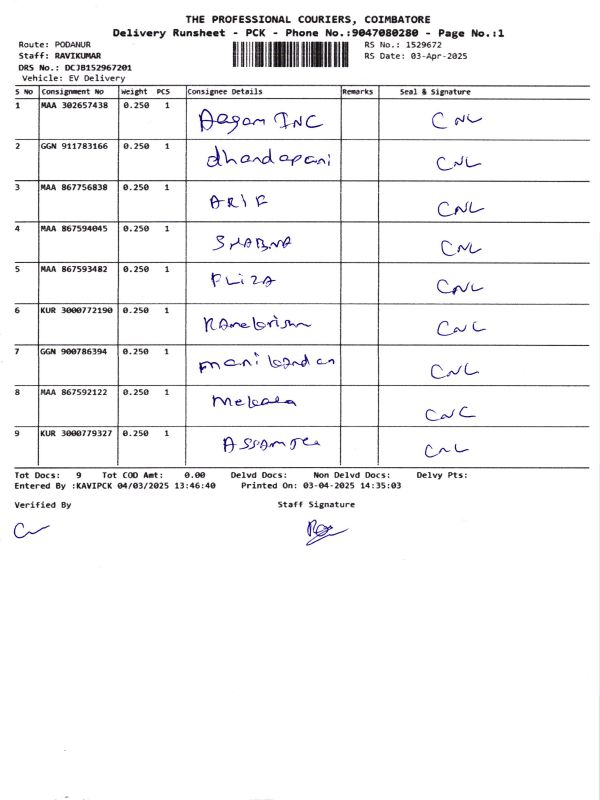 THE PROFESSIONAL COURIERS, COIMBATORE
Delivery Runsheet - PCK - Phone No.:9047080280 - Page No.:1
Route: PODANUR RS No.: 1529672
Staff: RAVIKUMAR RS Date: 03-Apr-2025
DRS No.: DCJB152967201
Vehicle: EV Delivery
S No Consignment No Weight PCS Consignee Details Remarks Seal & Signature
1 MAA 302657438 0.250 1 INC CNL
2 GGN 911783166 0.250 1 dhandapani CNL
3 MAA 867756838 0.250 1 ARIF CNL
4 MAA 867594045 0.250 1 SHABNA CNL
5 MAA 867593482 0.250 1 CNL
6 KUR 3000772190 0.250 1 CNC
7 GGN 900786394 0.250 1 manikandan CNL
8 MAA 867592122 0.250 1 Mekala CNC
9 KUR 3000779327 0.250 1 CNL
Tot Docs: 9 Tot COD Amt: 0.00 Delvd Docs: Non Delvd Docs: Delvy Pts:
Entered By :KAVIPCK 04/03/2025 13:46:40 Printed On: 03-04-2025 14:35:03
Verified By Staff Signature